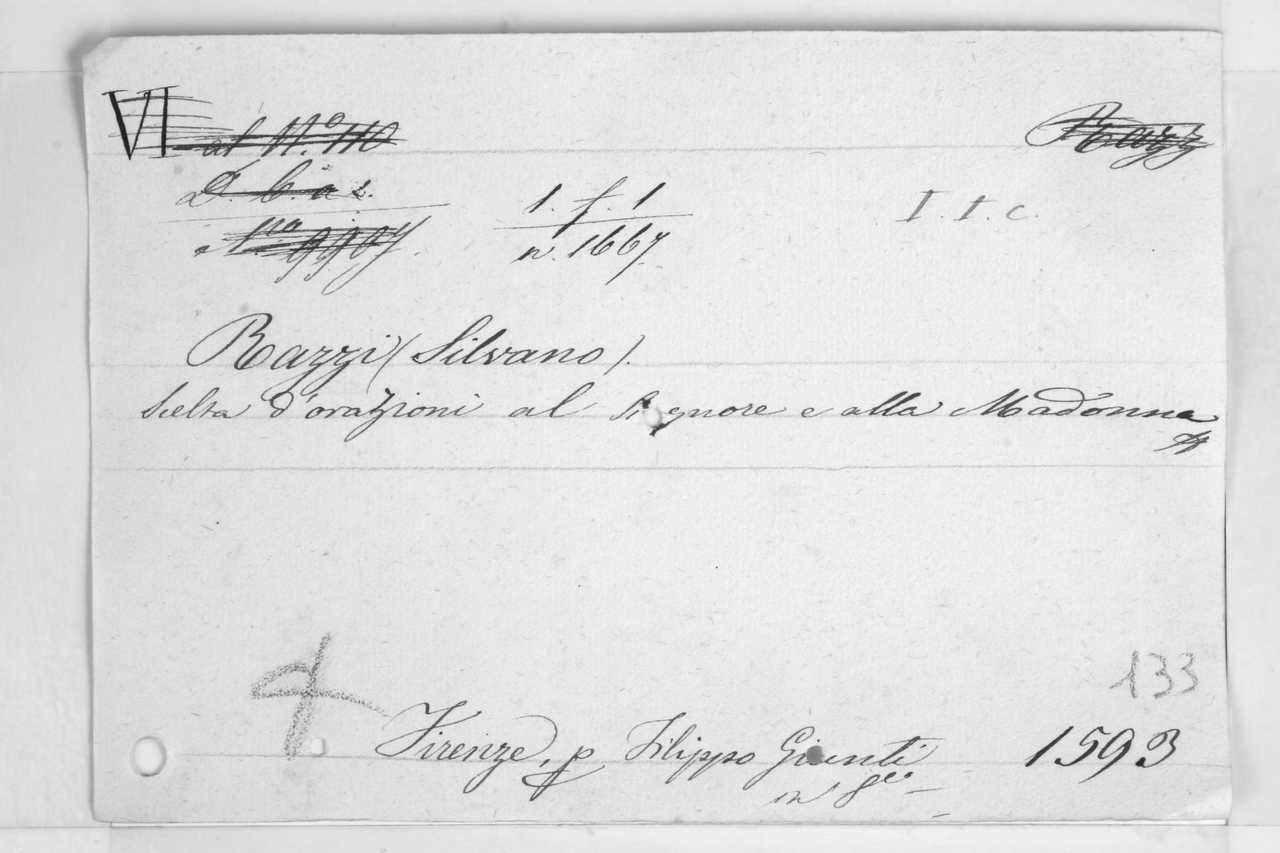 VI
al N.º 110
Razz
D. b. a 2.
N.ro 9907
1. f. 1
n. 1667.
I. I. c.
Razzi (Silvano).
Scelta d'orazioni al Signore e alla Madonna
133
Firenze, p Filippo Giunti 1593
in 8.vo –